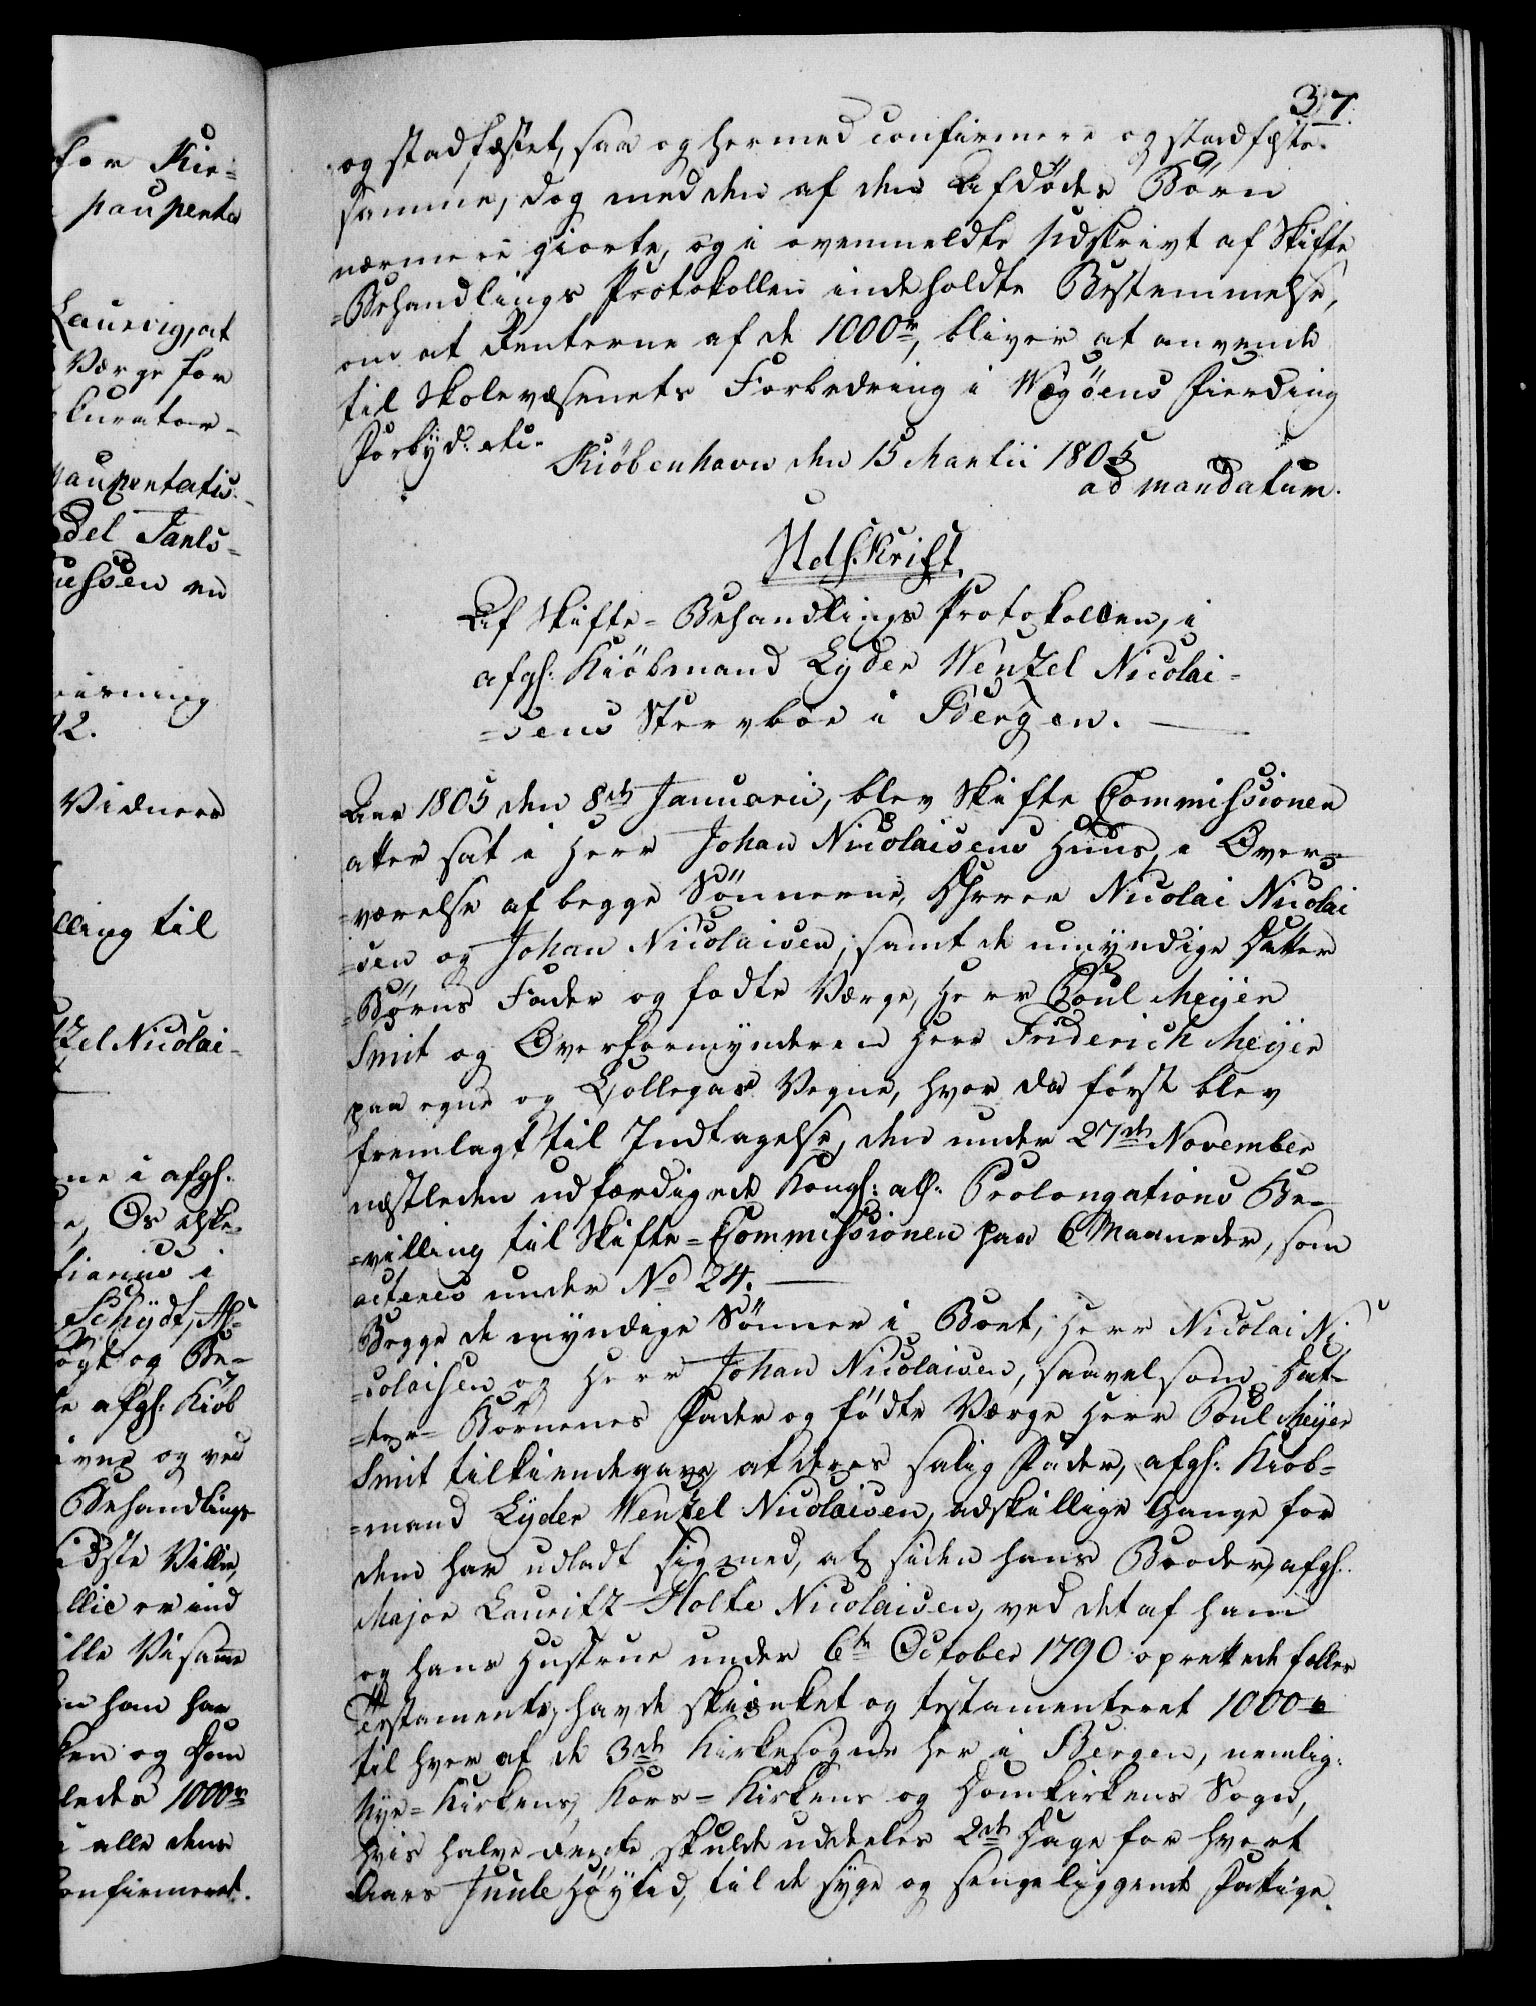 317.
og stadfæstet, saa og hermed confirmere og stadfæste
samme, dog med den af den Afdødes Børn
nærmere giorte, og i ovenmeldte Udskrivt af Skifte
=Behandlings Protokollen indeholdte Bestemmelse,
om at Renterne af de 1000 rd, bliver at anvende
til Skolevæsenets Forbedring i Wogöens Fierding
Forbyd: etc.
Kiöbenhavn den 15 Martii 1805
ad mandatum.
Udskrift
Af Skifte=Behandlings Protokollen, i
afg: Kiöbmand Lyder Wentzel Nicolai=
=sens Stervboe i Bergen.
Aar 1805 den 8de Januarii, blev Skifte Commissionen
atter sat i Herr Johan Nicolaisens Huus, i Over=
=værelse af begge Sønnerne, Hrrer Nicolai Nicolai
=sen og Johan Nicolaisen, samt de umyndige Datter
=Børns Fader og fødte Værge, Herr Poul Meyer
Smit og Overformynderen Herr Friderich Meyer
paa egne og Collegas Vegne, hvor da först blev
fremlagt til Indtagelse, den under 27de November
nestleden udfærdigede Kongl: all: Prolongations Be=
=villing til Skifte=Commissionen paa 6 Maaneder, som
acteres under No 24.
Begge de myndige Sönner i Boet, Herr Nicolai Ni
=colaisen og Herr Johan Nicolaisen, saavelsom Dat=
=ter=Börnenes Fader og födte Værge Herr Poul Meyer
Smit tilkiendegave, at deres salig Fader, afg: Kiöb=
=mand Lyder Wentzel Nicolaisen, adskillige Gange for
dem har udladt sig med, at siden hans Broder, afg:
Major Lauritz Holte Nicolaisen, ved det af ham
og hans Hustrue under 6te October 1790 oprettede felles
Testamente, havde skienket og testamenteret 1000 rd
til hver af de 3de Kirkesogne her i Bergen, nemlig:
Nye=Kirkens, Kors=Kirkens og Domkirkens Sogn,
hvis halve Rente skulde uddeeles 2de Dage for hvert
Aars Juule Höytid, til de syge og sengeliggende Fattige
for Kir=
paupertat
Laurvig, at
Værge for
Curator
paupertatis.
del Jarls=
ussen en
92.
Vidnere
lling til
tzel Nicolai=
ne i afg:
Os elske=
tianus i
Schydt, Af=
ogt og Be=
afg: Kiöb
og ved
Behandlings
idste Villie,
llie er ind
lle Vi samme
han har
ken og Dom
ledes 1000 rd
i alle dens
confirmeret.